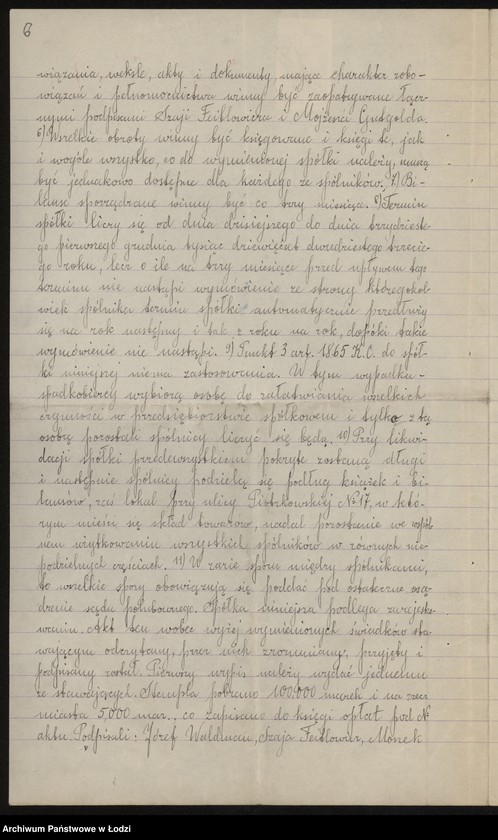 6
wiązania, weksle, akty i dokumenty, mające charakter zobo-
wiązań i pełnomocnictwa winny być zaopatrywane łącz-
nymi podpisami Szaji Feitlowicza i Mojżesza Gutgolda.
6) Wszelkie obroty winny być księgowane i księgi te, jak
i wogóle wszystko, co do wymienionej spółki należy, muszą
być jednakowo dostępne dla każdego ze spólników. 7) Bi-
lanse sporządzane winny być co trzy miesiące. 8) Termin
spółki liczy się od dnia dzisiejszego do dnia trzydzieste-
go pierwszego grudnia tysiąc dziewięćset dwudziestego trzecie-
go roku, lecz o ile na trzy miesiące przed upływem tego
terminu nie nastąpi wymówienie ze strony któregokol-
wiek spólnika termin spółki automatycznie przedłuży
się na rok następny i tak z roku na rok, dopóki takie
wymówienie nie nastąpi. 9) Punkt 3 art. 1865 K.C. do spół-
ki niniejszej niema zastosowania. W tym wypadku
spadkobiercy wybiorą osobę do załatwiania wszelkich
czynności w przedsiębiorstwie spółkowem i tylko z tą
osobą pozostali spólnicy liczyć się będą. 10) Przy likwi-
dacji spółki przedewszystkiem pokryte zostaną długi
i następnie spólnicy podzielą się podług książek i bi-
lansów, zaś lokal przy ulicy Piotrkowskiej № 17, w któ-
rym mieści się skład towarów, nadal pozostanie we wspól-
nem użytkowaniu wszystkich spólników w równych nie-
podzielnych częściach. 11) W razie sporu między spólnikami,
to wszelkie spory obowiązują się poddać pod ostateczne osą-
dzenie sądu polubownego. Spółka niniejsza podlega zarejestro-
waniu. Akt ten wobec wyżej wymienionych świadków sta-
wającym odczytany, przez nich zrozumiany, przyjęty i
podpisany został. Pierwszy wypis należy wydać jednemu
ze stawających. Stempla pobrano 100.000 marek i na rzecz
miasta 5.000 mar., co zapisano do księgi opłat pod №
aktu. Podpisali: Józef Waldman, Szaja Feitlowicz, Monek
Archiwum Państwowe w Łodzi